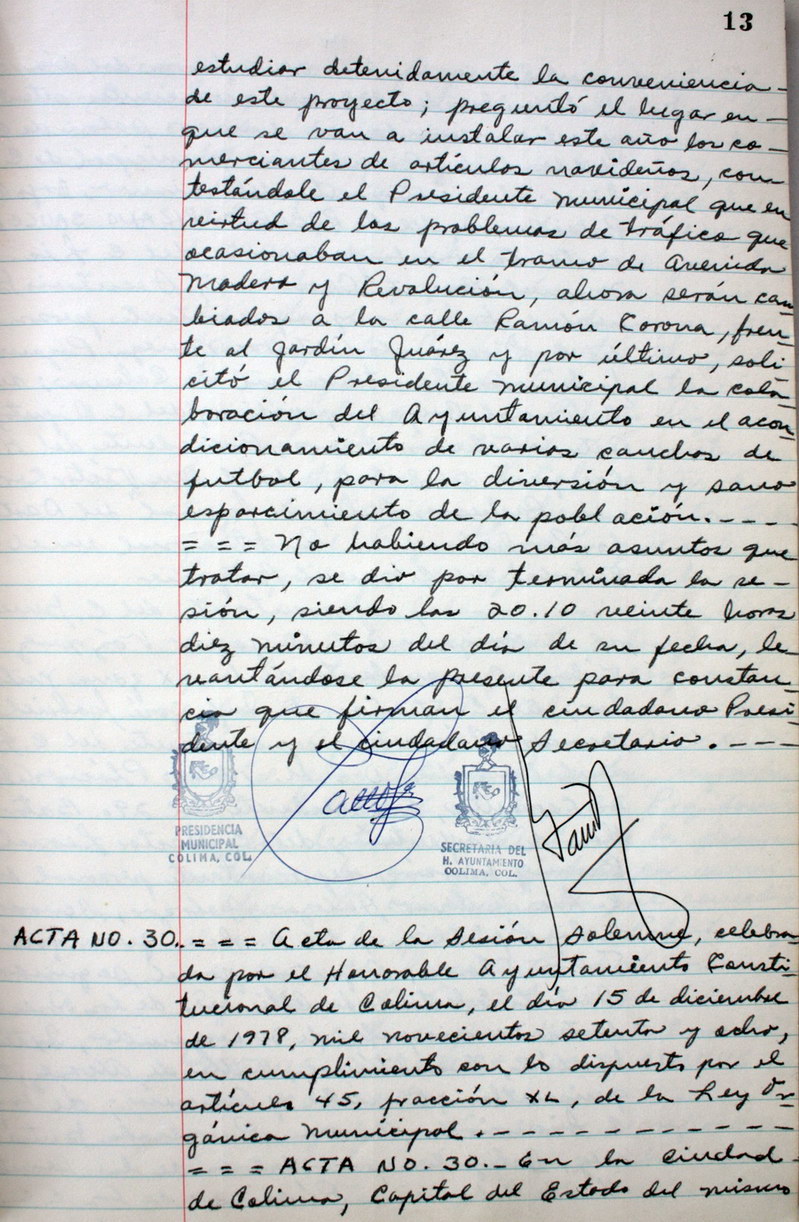 13
estudiar detenidamente la conveniencia-
de este proyecto; preguntó el lugar en-
que se van a instalar este año los co-
merciantes de artículos navideños, con-
testándole el Presidente municipal que en
virtud de los problemas de tráfico que
ocasionaban en el tramo de Avenida
Madero y Revolución, ahora serán cam-
biados a la calle Ramón Corona, fren-
te al Jardín Juárez y por último, soli-
citó el Presidente municipal la cola-
boración del Ayuntamiento en el acon-
dicionamiento de varias canchas de
futbol, para la diversión y sano
esparcimiento de la población.----
= = = No habiendo más asuntos que
tratar, se dio por terminada la se-
sión, siendo las 20.10 veinte horas
diez minutos del día de su fecha, le-
vantándose la presente para constan-
cia que firman el ciudadano Presi-
dente y el ciudadano Secretario.----
PRESIDENCIA
MUNICIPAL
COLIMA, COL.
SECRETARIA DEL
H. AYUNTAMIENTO
COLIMA, COL.
ACTA NO. 30.= = = Acta de la Sesión Solemne, celebra-
da por el Honorable Ayuntamiento Consti-
tucional de Colima, el día 15 de diciembre
de 1978, mil novecientos setenta y ocho,
en cumplimiento con lo dispuesto por el
artículo 45, fracción XL, de la Ley Or-
gánica Municipal.-----------
= = = ACTA NO. 30.- En la Ciudad-
de Colima, Capital del Estado del mismo